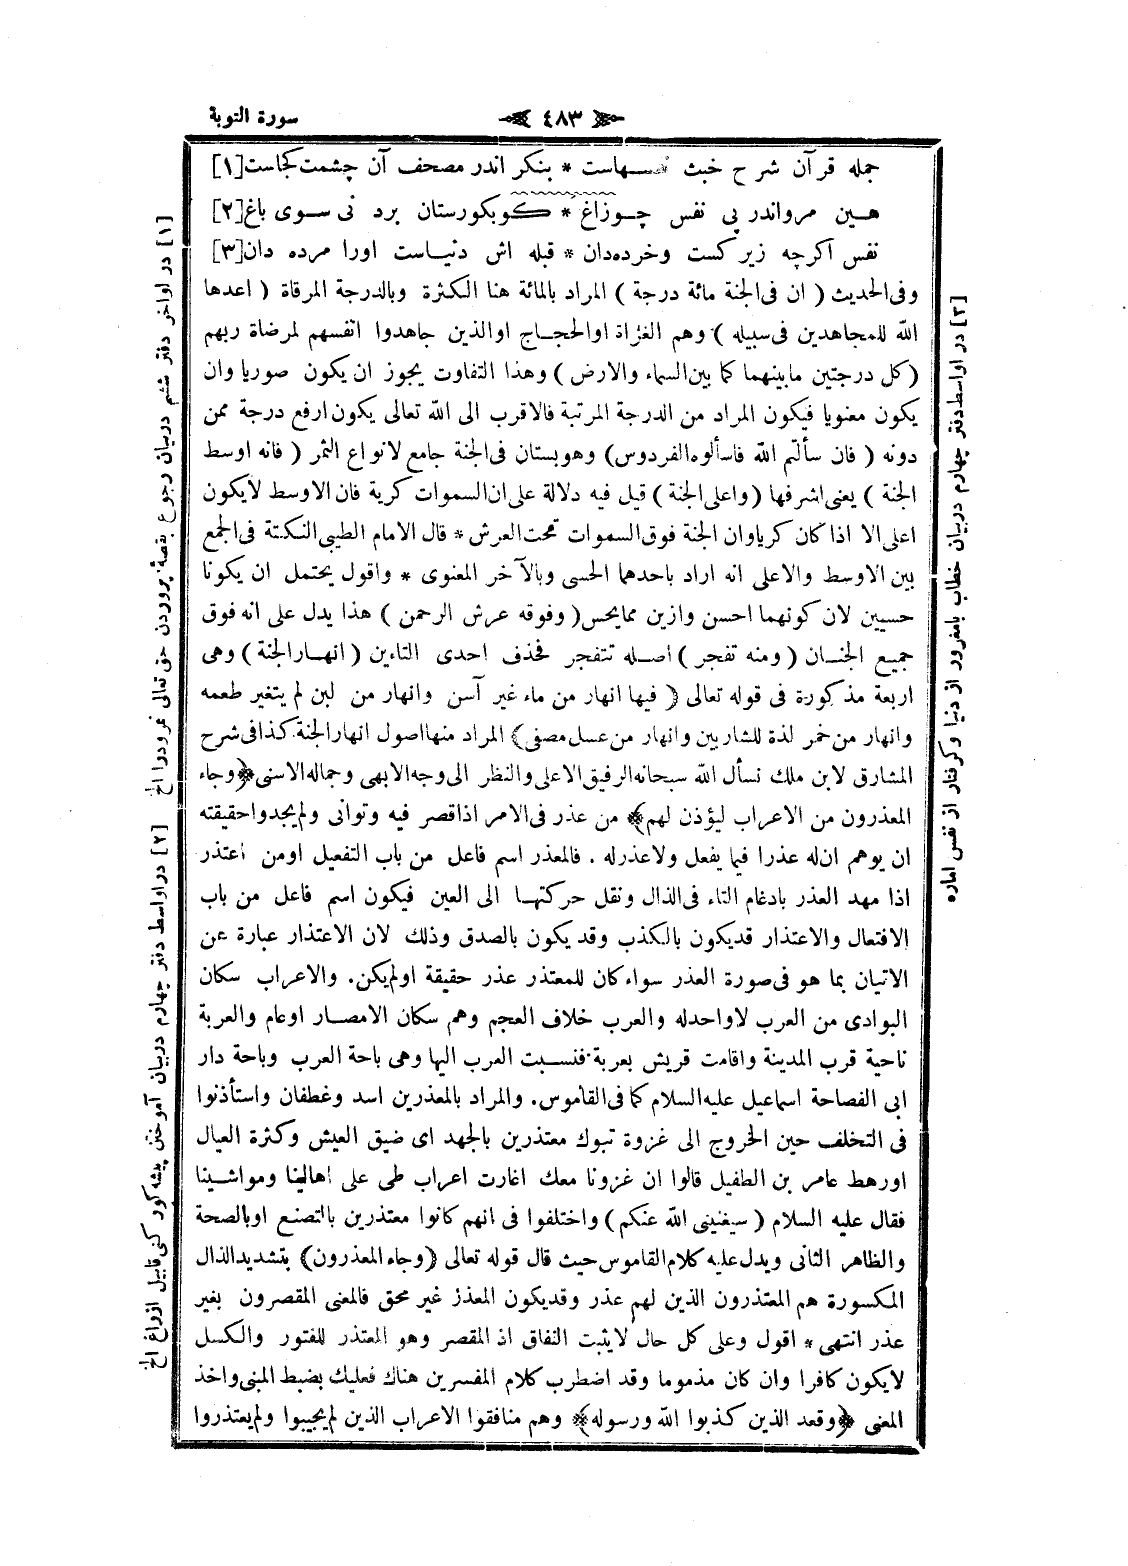 سورة التوبة
٤٨٣
جمله قرآن شرح خبث نفسهاست * بنكر اندر مصحف آن چشمت كجاست[١]
هين مرواندر پى نفس چوزاغ * كوبكورستان برد نى سوى باغ[٢]
نفس اكرچه زيركست وخرده‌دان * قبله اش دنياست اورا مرده دان[٣]
وفى الحديث ( ان فى الجنة مائة درجة ) المراد بالمائة هنا الكثرة وبالدرجة المرقاة ( اعدها
الله للمجاهدين فى سبيله ) وهم الغزاة او الحجاج او الذين جاهدوا انفسهم لمرضاة ربهم
( كل درجتين مابينهما كما بين السماء والارض ) وهذا التفاوت يجوز ان يكون صوريا وان
يكون معنويا فيكون المراد من الدرجة المرتبة فالاقرب الى الله تعالى يكون ارفع درجة ممن
دونه ( فان سألتم الله فاسألوه الفردوس) وهو بستان فى الجنة جامع لانواع الثمر ( فانه اوسط
الجنة ) يعنى اشرفها ( واعلى الجنة ) قيل فيه دلالة على ان السموات كرية فان الاوسط لايكون
اعلى الا اذا كان كريا وان الجنة فوق السموات تحت العرش * قال الامام الطيبى النكتة فى الجمع
بين الاوسط والاعلى انه اراد باحدهما الحسى وبالآخر المعنوى * واقول يحتمل ان يكونا
حسيين لان كونهما احسن وازين مما يحس ( وفوقه عرش الرحمن ) هذا يدل على انه فوق
جميع الجنان ( ومنه تفجر ) اصله تتفجر فحذف احدى التاءين ( انهار الجنة ) وهى
اربعة مذكورة فى قوله تعالى ( فيها انهار من ماء غير آسن وانهار من لبن لم يتغير طعمه
وانهار من خمر لذة للشاربين وانهار من عسل مصفى ) المراد منها اصول انهار الجنة كذا فى شرح
المشارق لابن ملك نسأل الله سبحانه الرفيق الاعلى والنظر الى وجه الابهى وجماله الاسنى ﴿ وجاء
المعذرون من الاعراب ليؤذن لهم ﴾ من عذر فى الامر اذا قصر فيه وتوانى ولم يجد وحقيقته
ان يوهم ان له عذرا فيما يفعل ولا عذر له . فالمعذر اسم فاعل من باب التفعيل او من اعتذر
اذا مهد العذر بادغام التاء فى الذال ونقل حركتها الى العين فيكون اسم فاعل من باب
الافتعال والاعتذار قد يكون بالكذب وقد يكون بالصدق وذلك لان الاعتذار عبارة عن
الاتيان بما هو فى صورة العذر سواء كان للمعتذر عذر حقيقة اولم يكن. والاعراب سكان
البوادى من العرب لا واحد له والعرب خلاف العجم وهم سكان الامصار او عام والعربة
ناحية قرب المدينة واقامت قريش بعربة فنسبت العرب اليها وهى باحة العرب وباحة دار
ابى الفصاحة اسماعيل عليه السلام كما فى القاموس. والمراد بالمعذرين اسد وغطفان واستأذنوا
فى التخلف حين الخروج الى غزوة تبوك معتذرين بالجهد اى ضيق العيش وكثرة العيال
اورهط عامر بن الطفيل قالوا ان غزونا معك اغارت اعراب طى على اهالينا ومواشينا
فقال عليه السلام ( سيغنينى الله عنكم ) واختلفوا فى انهم كانوا معتذرين بالتصنع او بالصحة
والظاهر الثانى ويدل عليه كلام القاموس حيث قال قوله تعالى ( وجاء المعذرون ) بتشديد الذال
المكسورة هم المعتذرون الذين لهم عذر وقد يكون المعذر غير محق فالمعنى المقصرون بغير
عذر انتهى * اقول وعلى كل حال لايثبت النفاق اذ المقصر وهو المعتذر للفتور والكسل
لايكون كافرا وان كان مذموما وقد اضطرب كلام المفسرين هناك فعليك بضبط المبنى واخذ
المعنى ﴿ وقعد الذين كذبوا الله ورسوله ﴾ وهم منافقوا الاعراب الذين لم يجيبوا ولم يعتذروا
[١] در اواخر دفتر ششم دربيان رجوع بقصهٔ پروردن حق تعالى نمرودرا الخ
[٢] در اواسط دفتر چهارم دربيان آموختن پيشهٔ كوركنى قابيل اززاغ الخ
[٣] در اواسط دفتر چهارم دربيان خطاب بامغرور از دنيا وكرفتار از نفس اماره